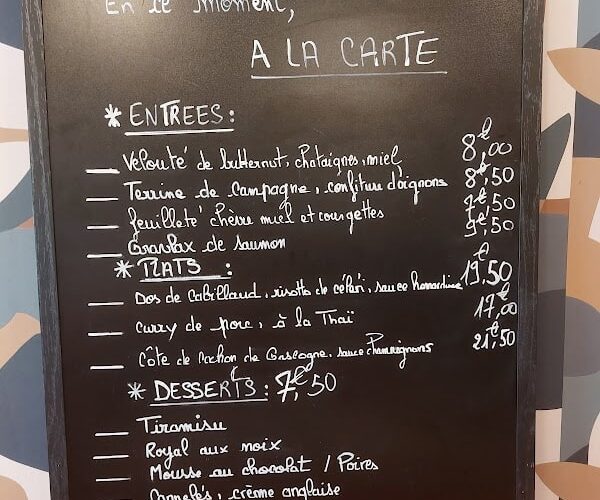 En ce moment,
A LA CARTE
* ENTREES :
Velouté de butternut, chataignes, miel 8€,00
Terrine de Campagne, confiture d'oignons 8€,50
feuilleté chèvre miel et courgettes 7€,50
Gravlax de saumon 9€,50
* PLATS :
Dos de Cabillaud, risotto de céleri, sauce homardine 19€,50
Curry de porc, à la Thaï 17€,00
Côte de cochon de Gascogne, sauce champignons 21€,50
* DESSERTS : 7€,50
Tiramisu
Royal aux noix
Mousse au chocolat / Poires
Cannelés, crème anglaise